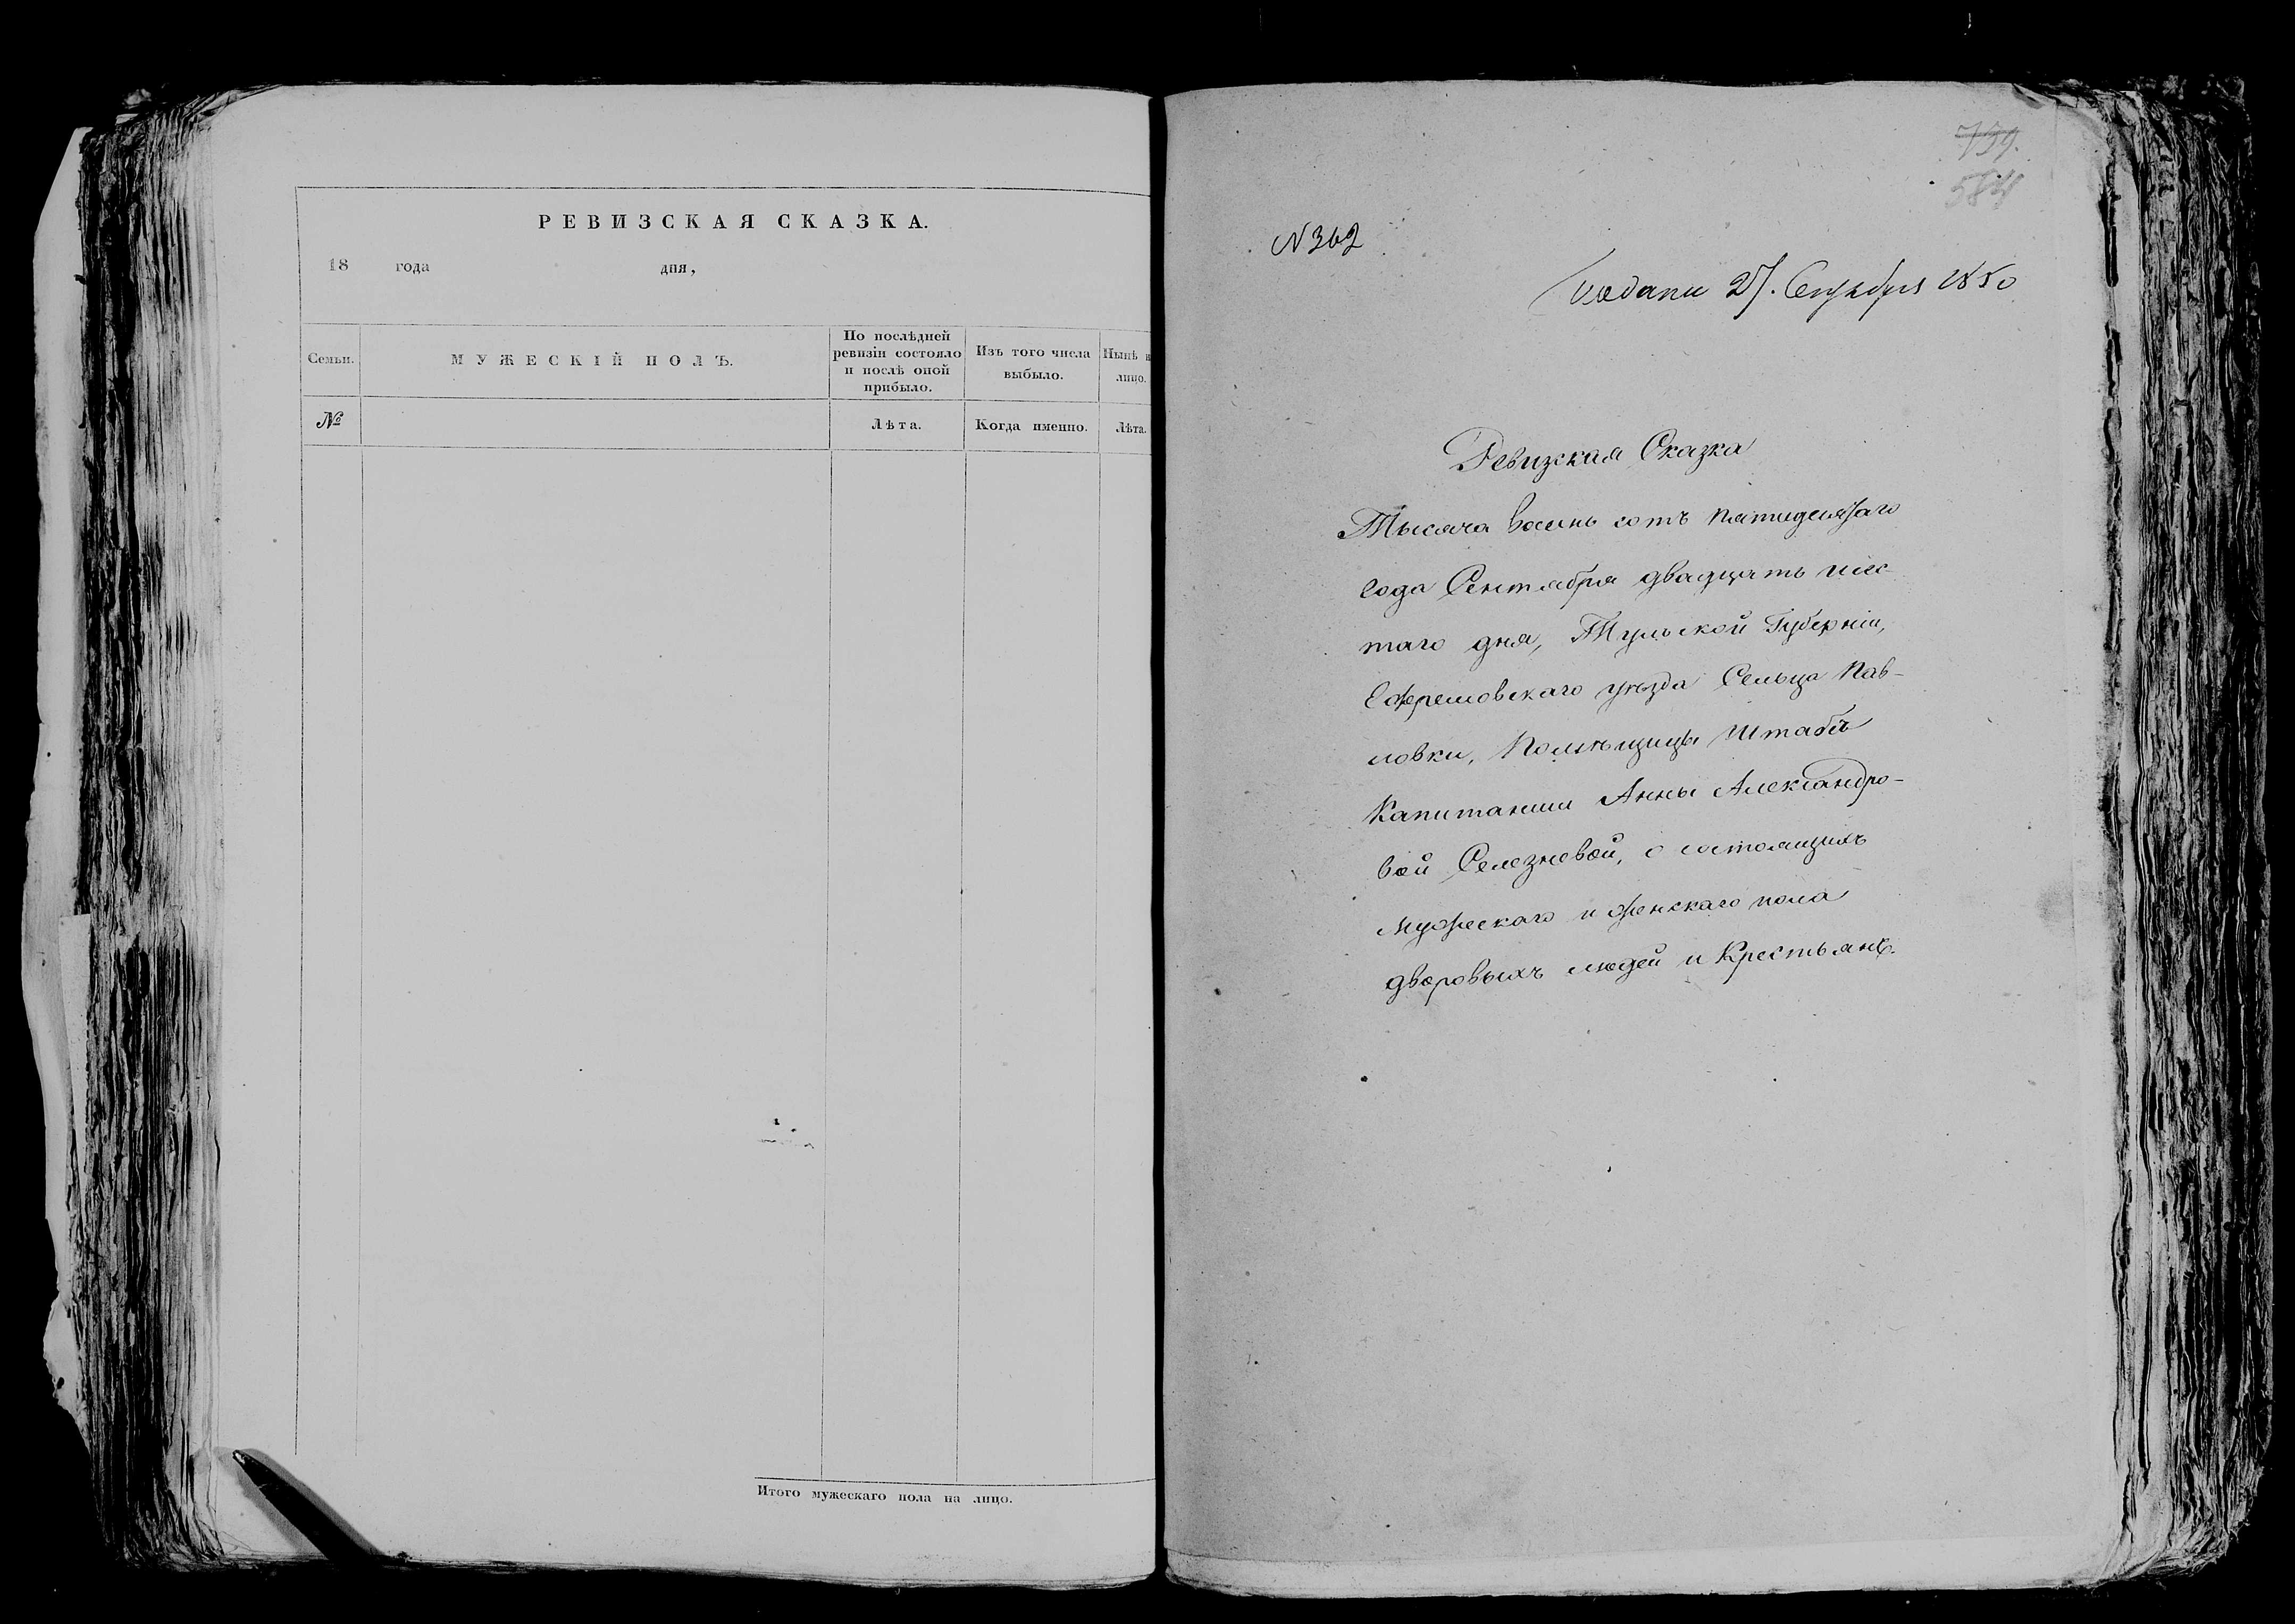 РЕВИЗСКАЯ СКАЗКА.
18 года дня,
Семьи.
МУЖЕСКІЙ ПОЛЪ.
По послѣдней
ревизіи состояло
и послѣ оной
прибыло.
Изъ того числа
выбыло.
Нынѣ н
лицо.
№
Лѣта.
Когда именно.
Лѣта.
Итого мужескаго пола на лицо.
739.
N 362
Подана 27. Сентября 1850
Ревизская Сказка
Тысяча восемь сотъ пятидесятаго
года Сентября двадцать шес-
таго дня, Тульской Губерніи,
Ефремовскаго уѣзда Сельца Пав-
ловки, Помѣщицы Штабъ
Капитанши Анны Александро-
вой Селезневой, о состоящихъ
мужескаго и женскаго пола
дворовыхъ людей и Крестьянъ.